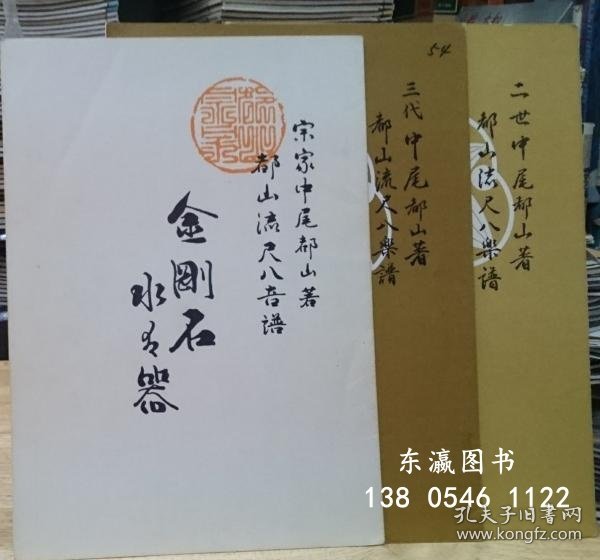 宗家中尾都山著
都山流尺八音譜
金剛石
水は器
54
三代中尾都山著
都山流尺八樂譜
二世中尾都山著
都山流尺八樂譜
东瀛图书
138 0546 1122
孔夫子旧书网
www.kongfz.com